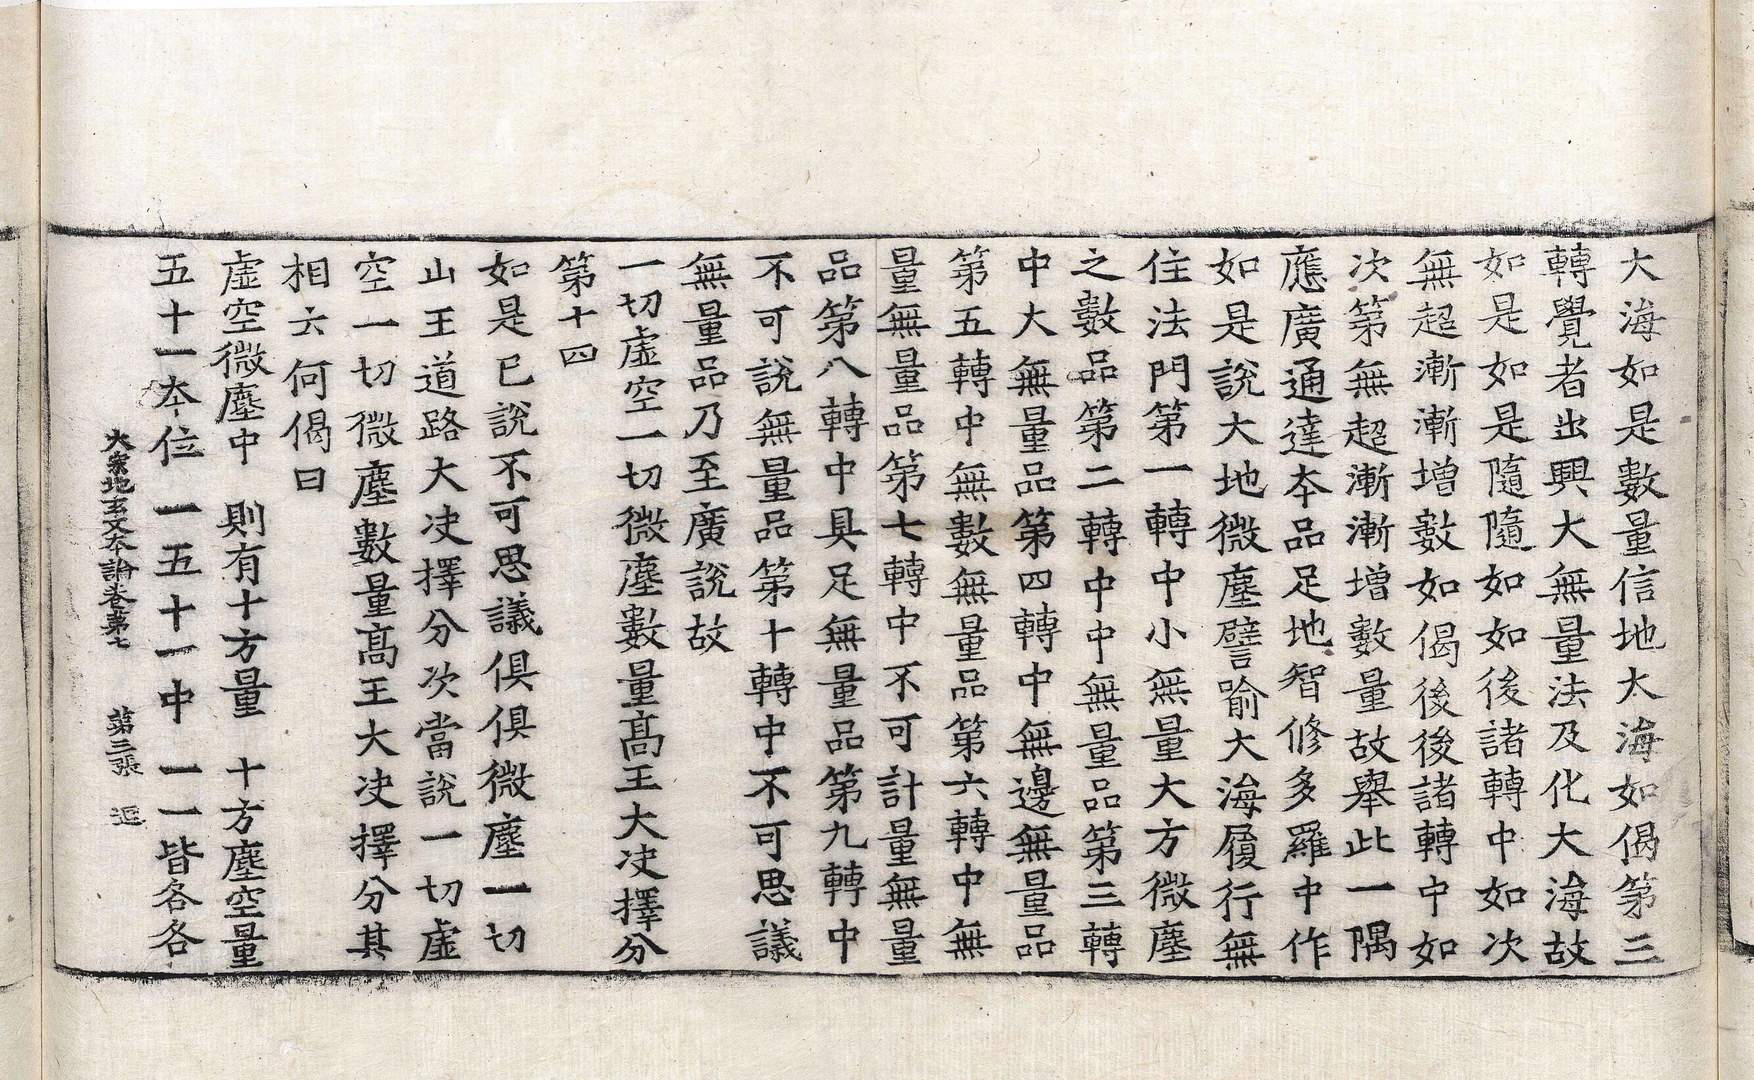 大海如是數量信地大海如偈第三
轉覺者出興大無量法及化大海故
如是如是隨隨如如後諸轉中如次
無超漸漸增數如偈後後諸轉中如
次第無超漸漸增數量故舉此一隅
應廣通達夲品足地智修多羅中作
如是說大地微塵譬喻大海履行無
住法門第一轉中小無量大方微塵
之數品第二轉中中無量品第三轉
中大無量品第四轉中無邊無量品
第五轉中無數無量品第六轉中無
量無量品第七轉中不可計量無量
品第八轉中具足無量品第九轉中
不可說無量品第十轉中不可思議
無量品乃至廣說故
一切虛空一切微塵數量高王大决擇分
第十四
如是已說不可思議俱俱微塵一切
山王道路大决擇分次當說一切虛
空一切微塵數量高王大决擇分其
相云何偈曰
虛空微塵中　則有十方量　十方塵空量
五十一夲位　一五十一中　一一皆各各
大宗地玄文夲論卷第七　第三張　逕